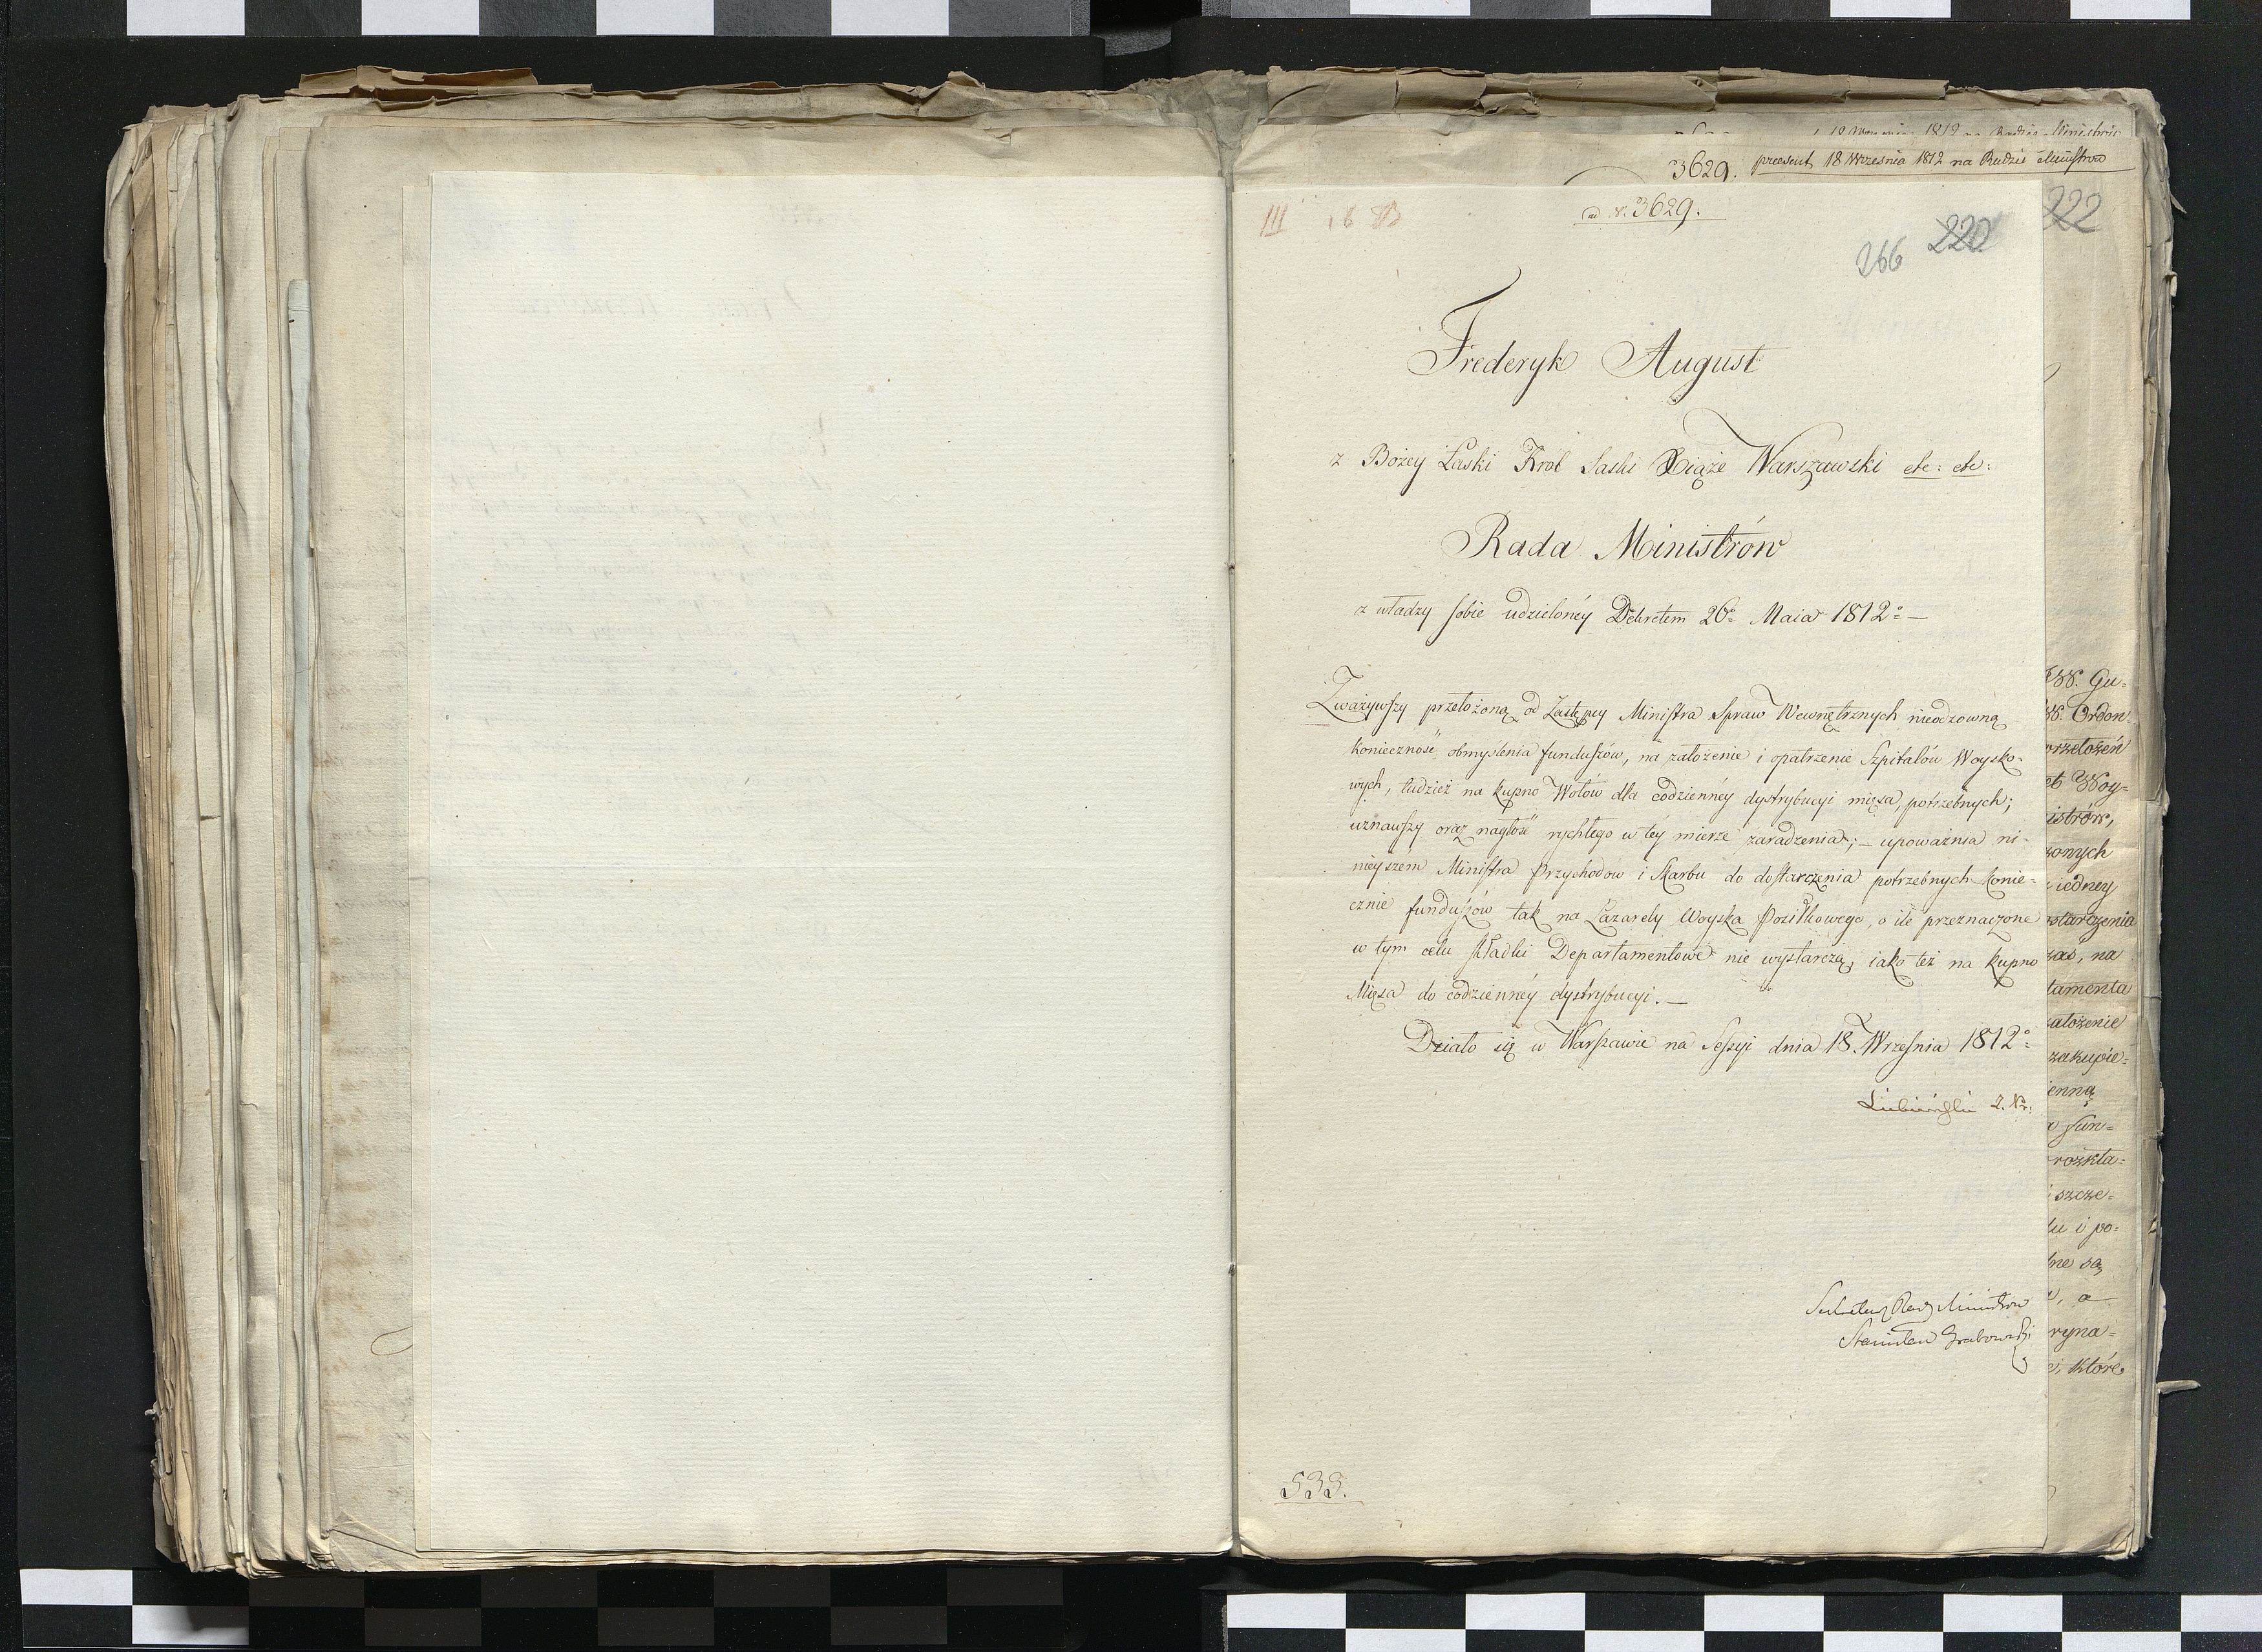 3629. praesent. 18 Września 1812 na Radzie Ministrów
ad N. 3629.
III 18 B
266 220 222
Frederyk August
z Bożey Łaski Krol Saski Xiąże Warszawski etc: etc:
Rada Ministrów
z władzy sobie udzielonéy Dekretem 26o Maia 1812o —
Zważywszy przełożoną od Zastępcy Ministra Spraw Wewnętrznych nieodzowną
konieczność obmyślenia funduszów, na założenie i opatrzenie Szpitalów Woysko-
wych, tudzież na kupno Wołów dla codzienney dystrybucyi mięsa, potrzebnych;
uznawszy oraz nagłość rychłego w téy mierze zaradzenia; — upoważnia ni-
nieyszém Ministra Przychodow i Skarbu do dostarczenia potrzebnych konie-
cznie funduszów tak na Lazarety Woyska Posiłkowego, o ile przeznaczone
w tym celu składki Departamentowe nie wystarczą, iako też na kupno
Mięsa do codziennéy dystrybucyi. —
Działo się w Warszawie na Sessyi dnia 18. Września 1812o
Lubieński
Sekretarz Rady Ministrow
Stanisław Grabowski
533.
W. Gu-
W. Ordon
przełożeń
et Woy-
istrów,
zonych
iedney
ostarczenia
zaś, na
tamenta
założenie
zakupie-
ienną
fun-
rozkła-
szcze-
du i po-
ne są
, a
ryna-
, które